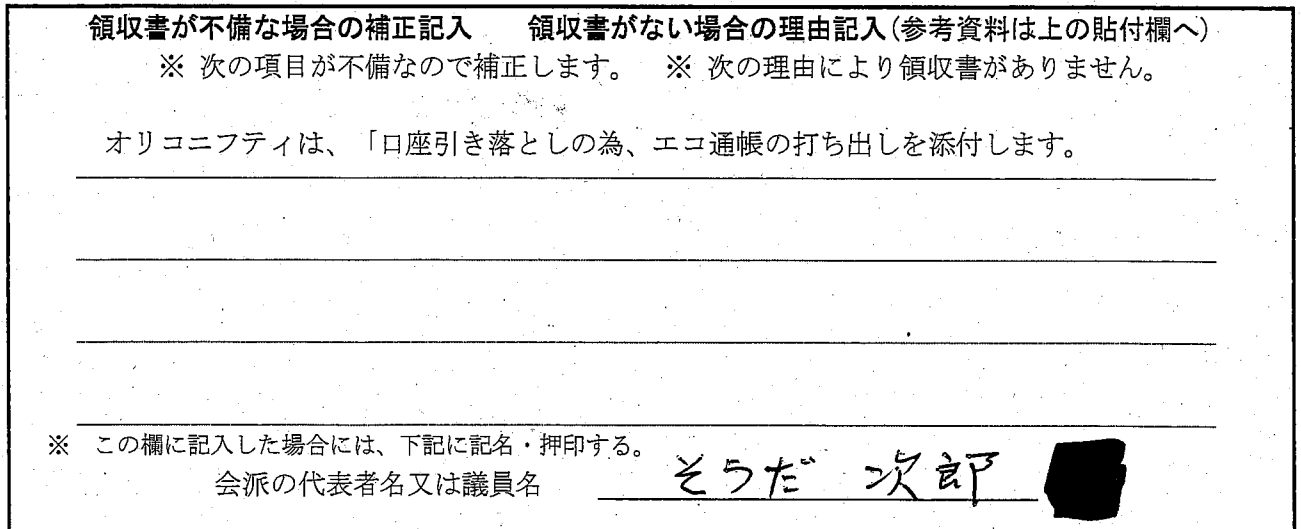 領収書が不備な場合の補正記入　　領収書がない場合の理由記入(参考資料は上の貼付欄へ)
※ 次の項目が不備なので補正します。　※ 次の理由により領収書がありません。
オリコニフティは、「口座引き落としの為、エコ通帳の打ち出しを添付します。
※　この欄に記入した場合には、下記に記名・押印する。
会派の代表者名又は議員名　そうだ 次郎